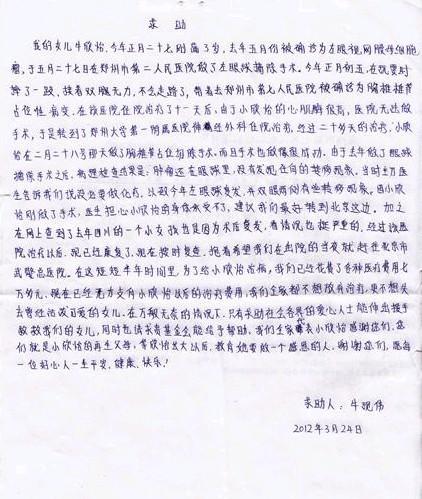 求 助
我的女儿牛欣怡，今年正月二十七刚满3岁，去年五月份被确诊为左眼视网膜母细胞
瘤，于五月二十七日在郑州市第二人民医院做了左眼球摘除手术。今年正月初五，在玩耍时
摔了一跤，接着双腿无力，不会走路了，带着去郑州市第七人民医院被确诊为胸椎椎管
占位性病变，在该医院住院治疗了十一天后，由于小欣怡的心肌酶很高，医院无法做
手术，于是转到了郑州大学第一附属医院神经外科住院治疗，经过二十多天的治疗，小欣
怡在二月二十八号那天做了胸椎管占位切除手术。而且手术也做得很成功。由于去年做了眼球
摘除手术之后，病理检查结果是：肿瘤还在眼球里，没有发现任何的转移现象。当时主刀医
生告诉我们说没必要做化疗，以致今年左眼球复发，并双眼两侧有些转移现象。因小欣
怡刚做了手术，医生担心小欣怡的身体承受不了，建议我们最好转到北京这边。加之
在网上查到了去年四川的一个小女孩也是因为术后复发，看情况也挺严重的，经过该医
院治疗以后，现已经康复了，现在按时复查。抱着希望我们在出院的当夜就赶往北京市
武警总医院。在这短短半年时间里，为了给小欣怡治病，我们已经花费了各种医药费用七
万多元，现在已经无力支付小欣怡以后的治疗费用，我们全家都不想放弃治疗，更不想失
去曾经活泼可爱的女儿。在万般无奈的情况下，只有求助社会各界的爱心人士能伸出援手
救救我们的女儿，同时也请求贵基金会能给予帮助。我们全家代表小欣怡感谢您们，您
们就是小欣怡的再生父母，等欣怡长大以后，教育她要做一个感恩的人。谢谢您们，愿每
一位好心人一生平安，健康、快乐！
求助人：牛现伟
2012年3月24日